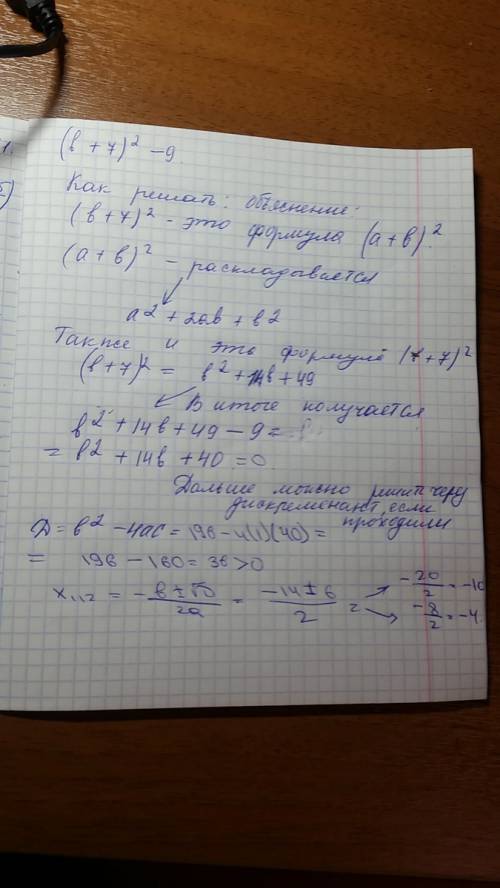 1. (в + 7)² - 9
б) Как решать: Объяснение:
(в + 7)² - это формула (а + в)².
(а + в)² - раскладывается
а² + 2ав + в²
Также и это формуле (в + 7)²
(в + 7)² = в² + 14в + 49
В итоге получается
в² + 14в + 49 - 9 =
= в² + 14в + 40 = 0
Дальше можно решить через
дискременант, если
проходили
Д = в² - 4ас = 196 - 4(1)(40) =
= 196 - 160 = 36 > 0
x₁,₂ = - в ± √D / 2а = -14 ± 6 / 2 = -20/2 = -10
-8/2 = -4.